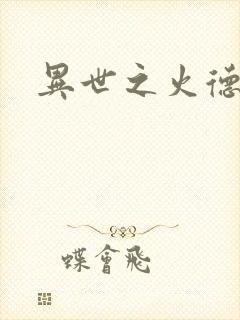 異世之火德
蝶會飛